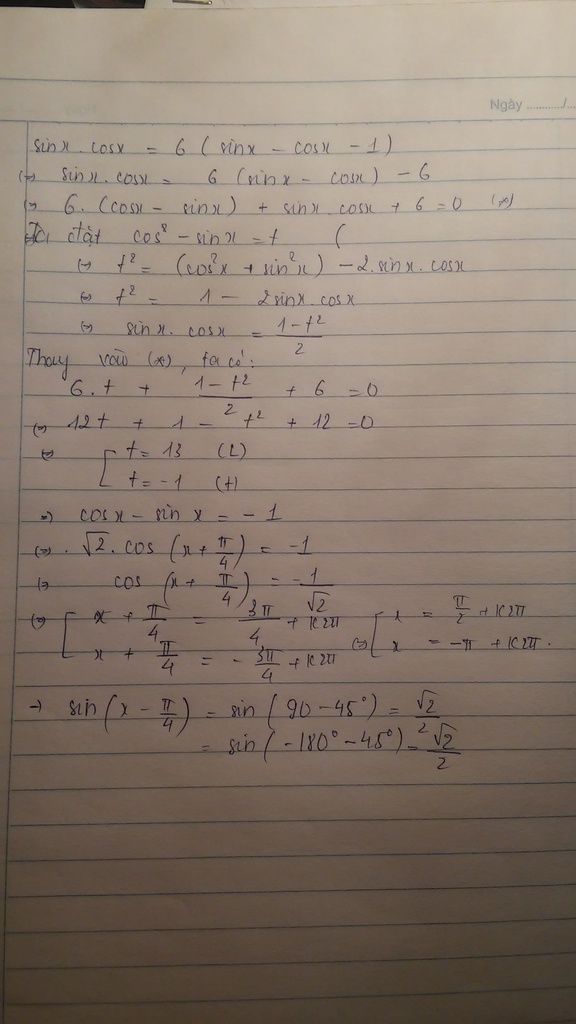 Ngày ........../...
sinx . cosx = 6 ( sinx - cosx - 1 )
(=) sinx . cosx = 6 (sinx - cosx) - 6
(=) 6. (cosx - sinx) + sinx . cosx + 6 = 0 (*)
Ta đặt cos² - sinx = t (
(=) t² = (cos²x + sin²x) - 2.sinx.cosx
(=) t² = 1 - 2sinx.cosx
(=) sinx . cosx = (1-t²)/2
Thay vào (*), ta có:
6.t + (1-t²)/2 + 6 = 0
(=) 12t + 1 - t² + 12 = 0
(=) [ t = 13 (L)
t = -1 (t)
=) cosx - sin x = -1
(=) . √2 . cos (x + π/4) = -1
(=) cos (x + π/4) = -1/√2
(=) [ x + π/4 = 3π/4 + K2π (=) [ x = π/2 + K2π
x + π/4 = -3π/4 + K2π x = -π + K2π.
→ sin (x - π/4) = sin (90 - 45°) = √2/2
= sin (-180° - 45°) = √2/2